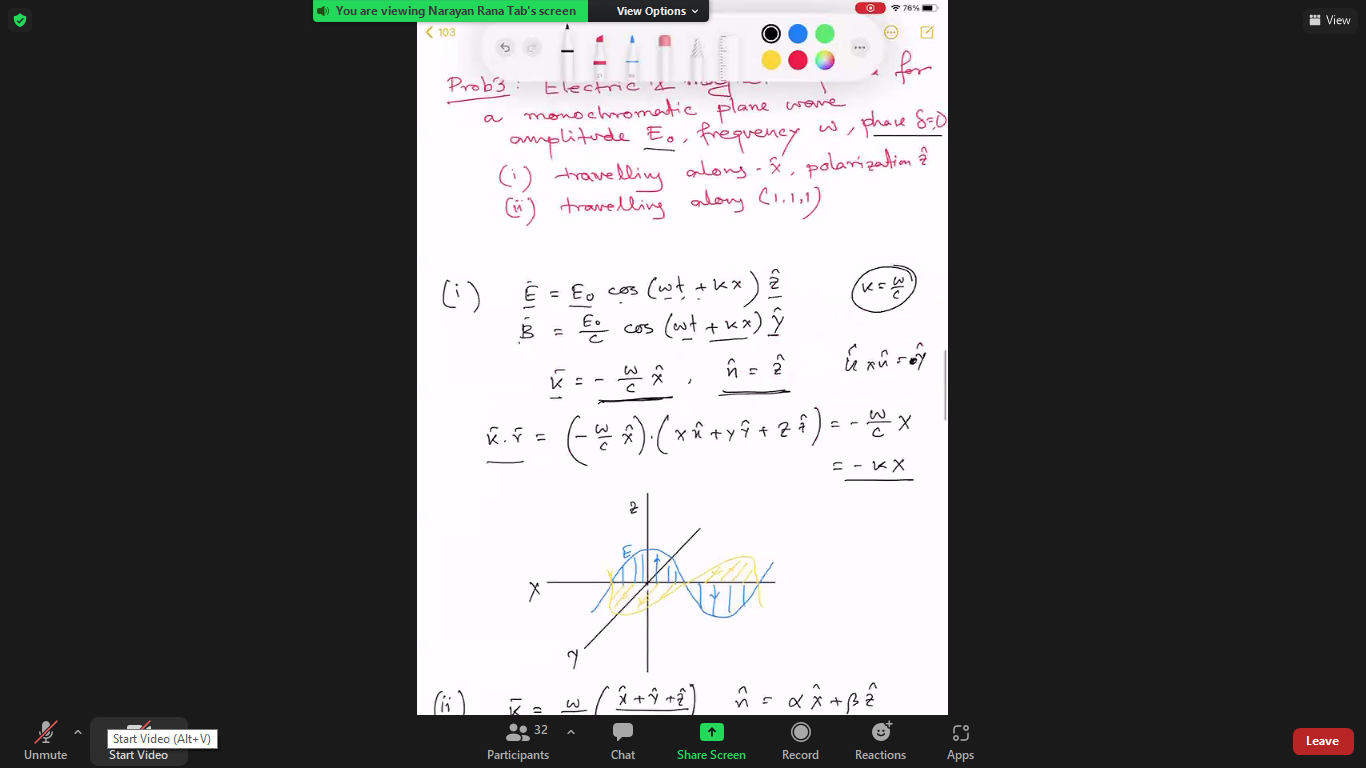 You are viewing Narayan Rana Tab's screen
View Options
76%
View
103
Prob 3 : Electric & for
a monochromatic plane wave
amplitude E₀, frequency ω, phase δ=0
(i) travelling along -x̂, polarization ẑ
(ii) travelling along (1,1,1)
(i) Ē = E₀ cos (ωt + kx) ẑ
k = ω/c
B̄ = E₀/c cos (ωt + kx) ŷ
k̄ = - ω/c x̂ , n̂ = ẑ
k̂ x n̂ = ŷ
k̄ . r̄ = (- ω/c x̂) . (x x̂ + y ŷ + z ẑ) = - ω/c x
= - kx
z
E
x
y
(ii) k̄ = ω (x̂ + ŷ + ẑ) n̂ = α x̂ + β ẑ
Start Video (Alt+V)
32
Unmute
Start Video
Participants
Chat
Share Screen
Record
Reactions
Apps
Leave